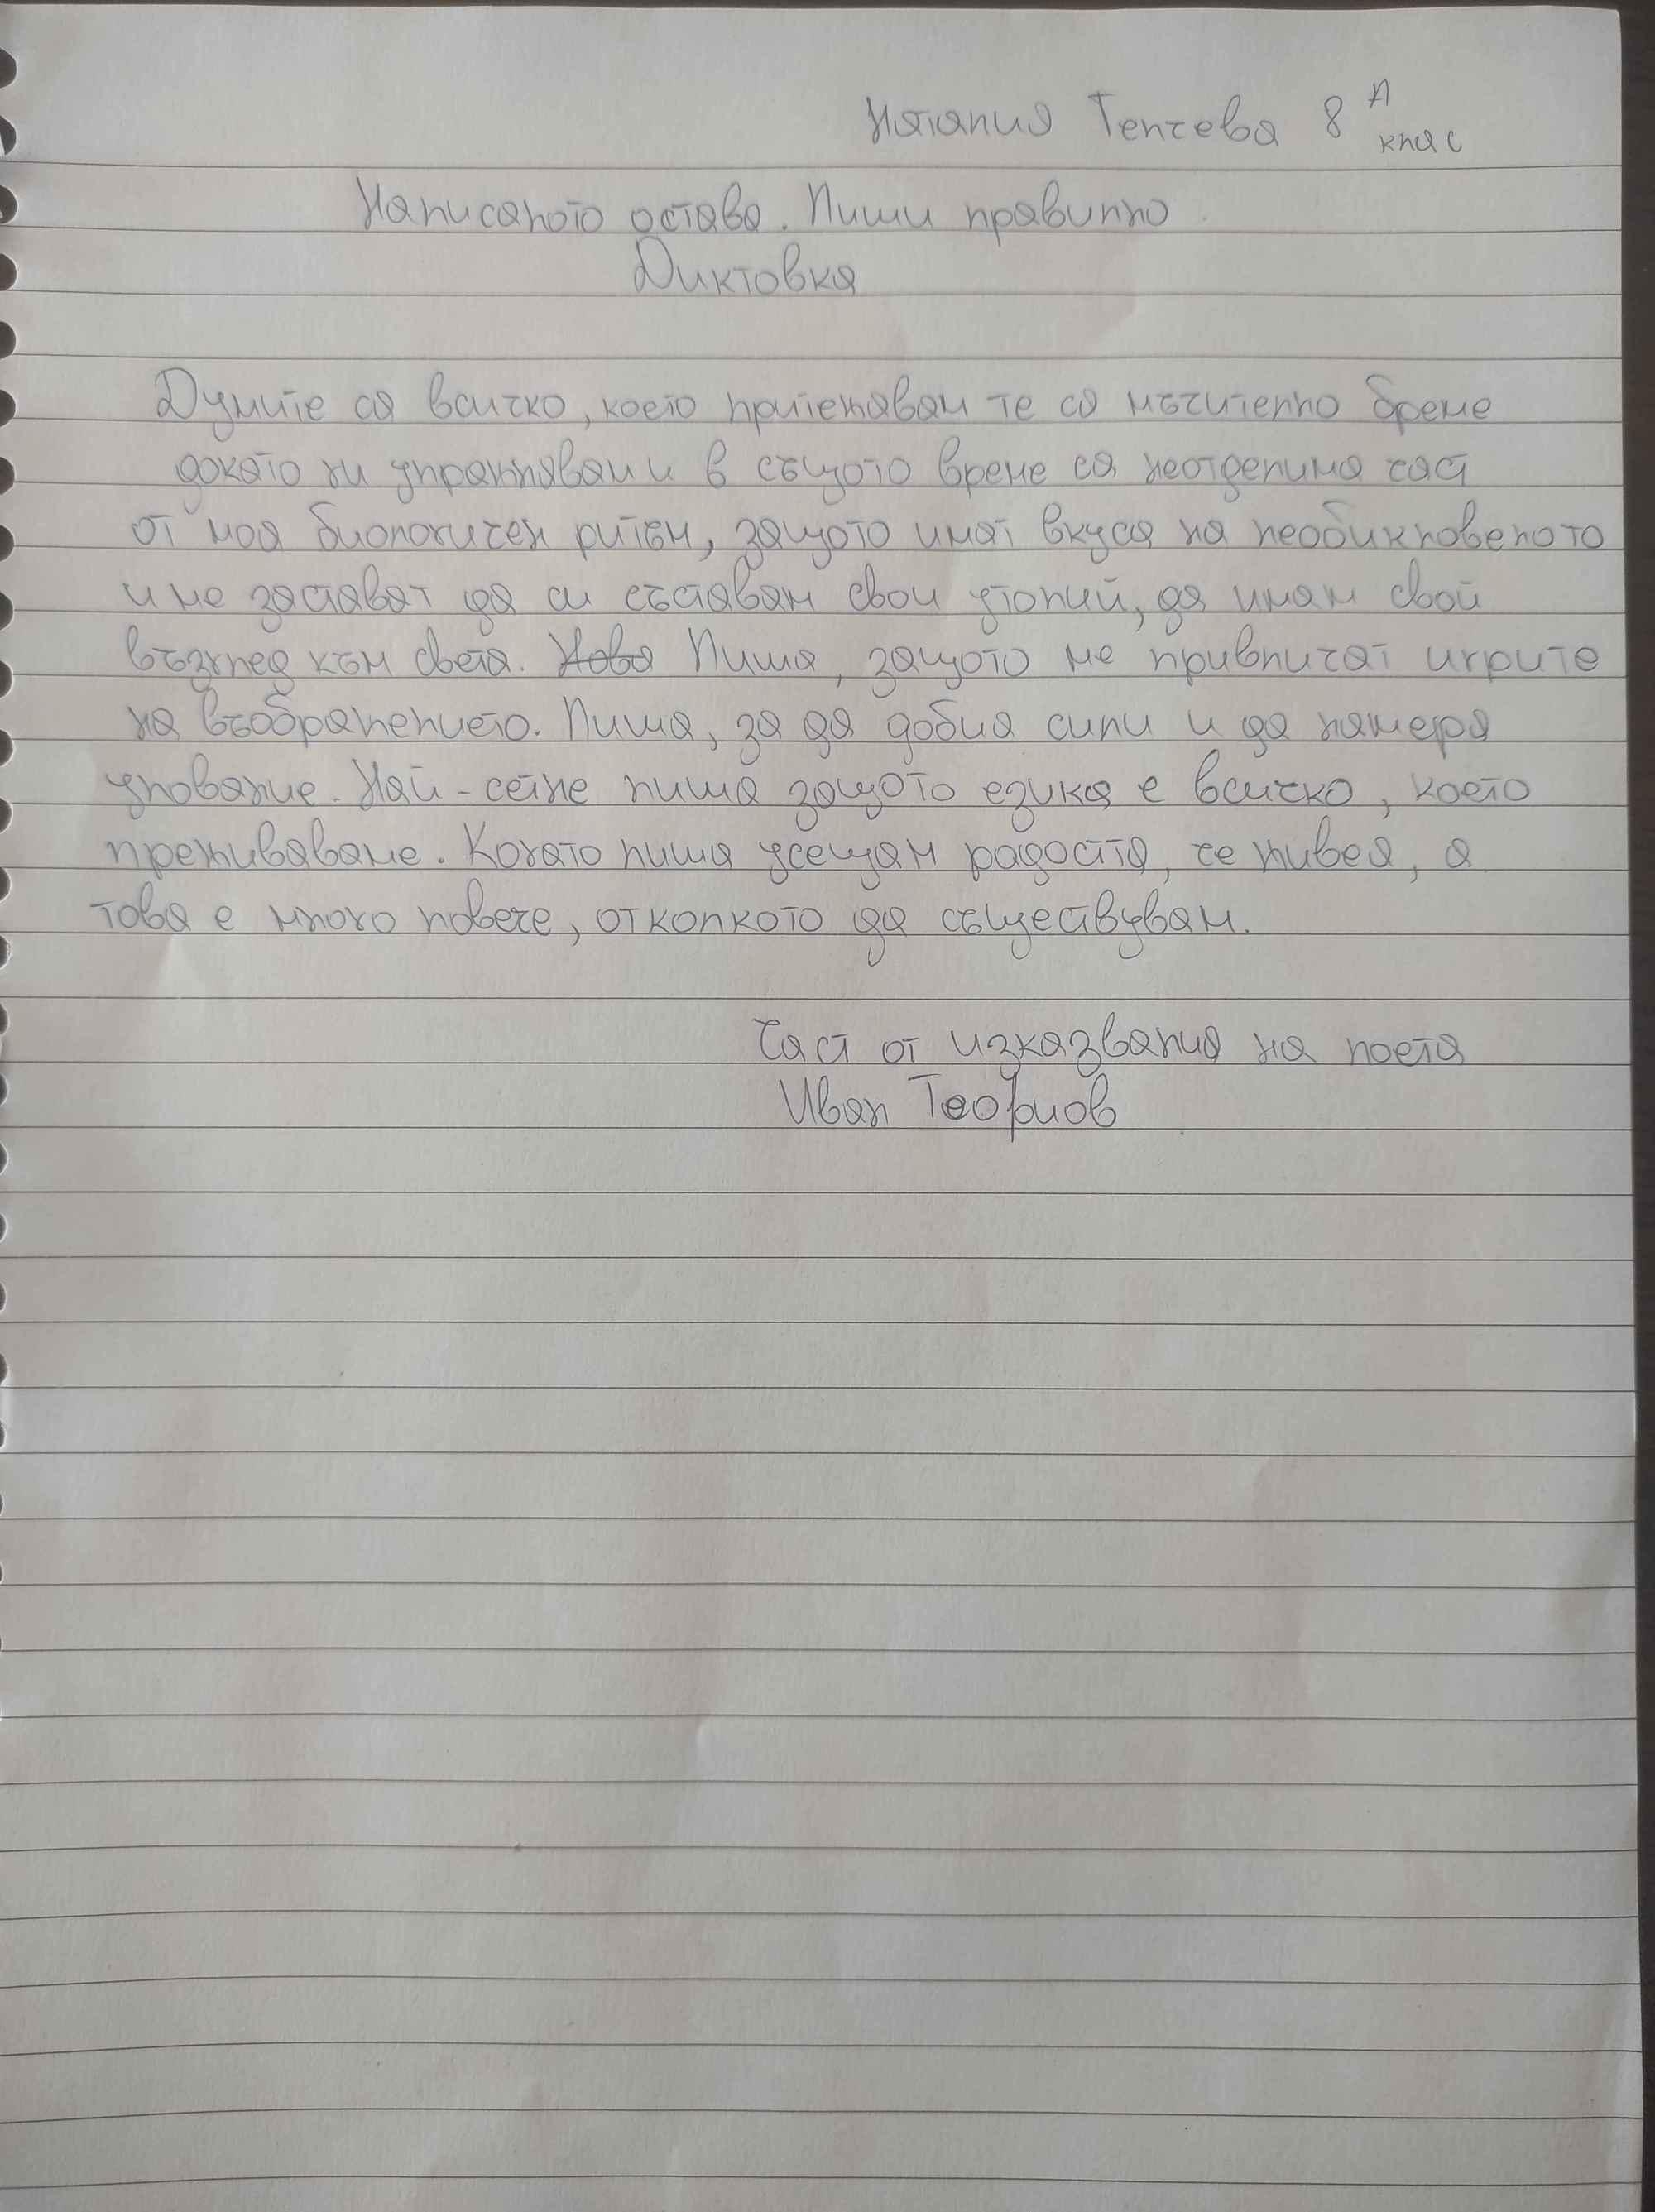 Наталия Генчева 8 А
клас
Написаното остава. Пиши правилно
Диктовка
Думите са всичко, което притежавам те са мъчително бреме
докато ги управлявам и в същото време са неотделима част
от моя биологичен ритъм, защото имат вкуса на необикновеното
и ме заставят да си съставям свои утопий, да имам свой
възглед към света. Пиша, защото ме привличат игрите
на въображението. Пиша, за да добия сили и да намеря
упование. Най-сетне пиша защото езика е всичко, което
преживяваме. Когато пиша усещам радостта, че живея, а
това е много повече, отколкото да съществувам.
Част от изказвания на поета
Иван Теофилов